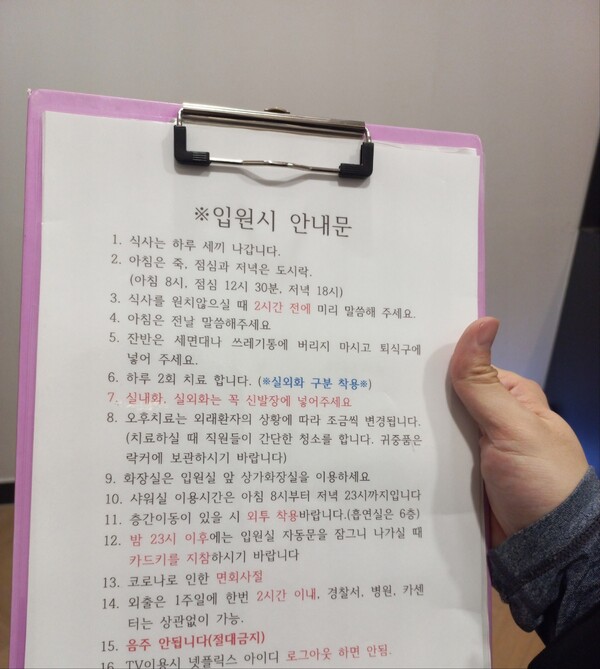 ※입원시 안내문
1. 식사는 하루 세끼 나갑니다.
2. 아침은 죽, 점심과 저녁은 도시락.
(아침 8시, 점심 12시 30분, 저녁 18시)
3. 식사를 원치않으실 때 2시간 전에 미리 말씀해 주세요.
4. 아침은 전날 말씀해주세요
5. 잔반은 세면대나 쓰레기통에 버리지 마시고 퇴식구에
넣어 주세요.
6. 하루 2회 치료 합니다. (※실외화 구분 착용※)
7. 실내화, 실외화는 꼭 신발장에 넣어주세요
8. 오후치료는 외래환자의 상황에 따라 조금씩 변경됩니다.
(치료하실 때 직원들이 간단한 청소를 합니다. 귀중품은
락커에 보관하시기 바랍니다)
9. 화장실은 입원실 앞 상가화장실을 이용하세요
10. 샤워실 이용시간은 아침 8시부터 저녁 23시까지입니다
11. 층간이동이 있을 시 외투 착용바랍니다.(흡연실은 6층)
12. 밤 23시 이후에는 입원실 자동문을 잠그니 나가실 때
카드키를 지참하시기 바랍니다
13. 코로나로 인한 면회사절
14. 외출은 1주일에 한번 2시간 이내, 경찰서, 병원, 카센
터는 상관없이 가능.
15. 음주 안됩니다(절대금지)
16. TV이용시 넷플릭스 아이디 로그아웃 하면 안됨.